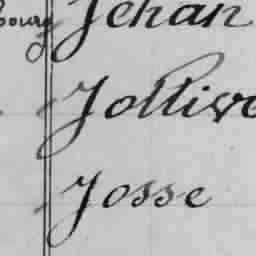 bourg Jehan
Jollive
Josse